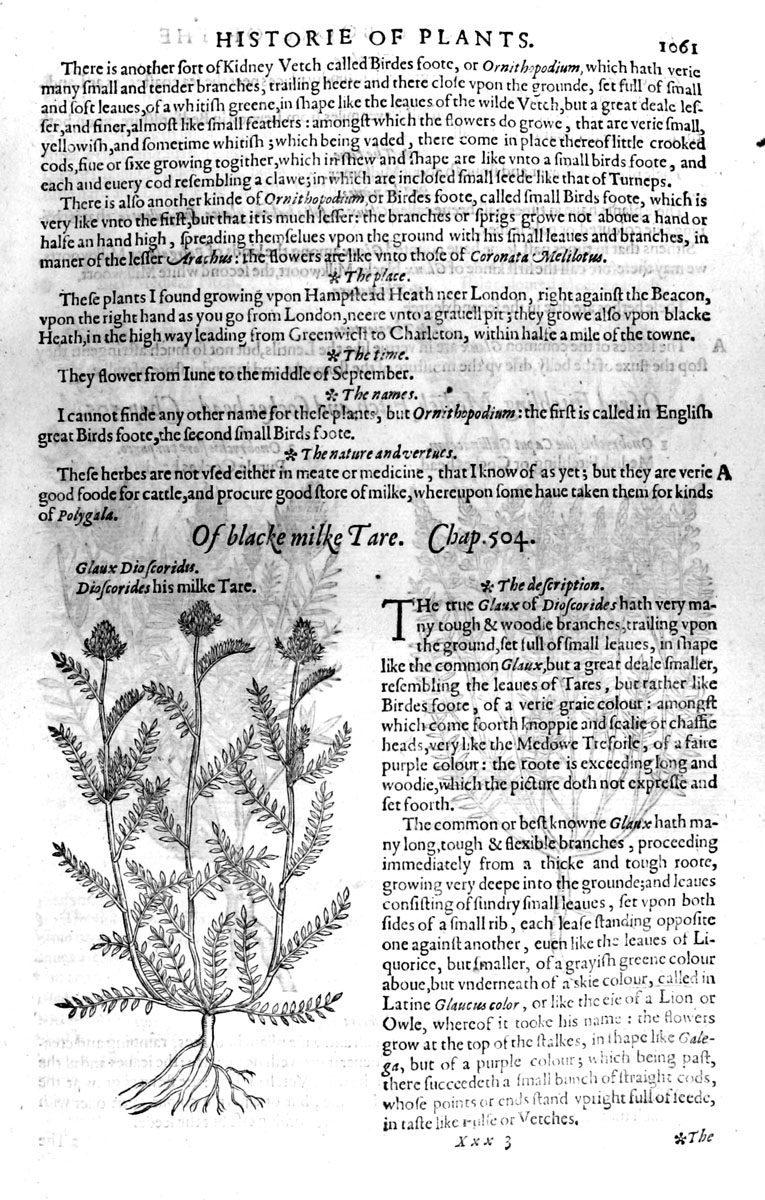 HISTORIE OF PLANTS. 1061
There is another ſort of Kidney Vetch called Birdes foote, or Ornithopodium, which hath verie
many ſmall and tender branches, trailing heere and there cloſe vpon the grounde, ſet full of ſmall
and ſoft leaues, of a whitiſh greene, in ſhape like the leaues of the wilde Vetch, but a great deale leſ-
ſer, and finer, almoſt like ſmall feathers: amongſt which the flowers do growe, that are verie ſmall,
yellowiſh, and ſometime whitiſh; which being vaded, there come in place thereof little crooked
cods, fiue or ſixe growing togither, which in ſhew and ſhape are like vnto a ſmall birds foote, and
each and euery cod reſembling a clawe; in which are incloſed ſmall ſeede like that of Turneps.
There is alſo another kinde of Ornithopodium, or Birdes foote, called ſmall Birds foote, which is
very like vnto the firſt, but that it is much leſſer: the branches or ſprigs growe not aboue a hand or
halfe an hand high, ſpreading themſelues vpon the ground with his ſmall leaues and branches, in
maner of the leſſer Arachus: the flowers are like vnto thoſe of Coronata Melilotus.
❧ The place.
Theſe plants I found growing vpon Hampſtead Heath neer London, right againſt the Beacon,
vpon the right hand as you go from London, neere vnto a grauell pit; they growe alſo vpon blacke
Heath, in the high way leading from Greenwich to Charleton, within halfe a mile of the towne.
❧ The time.
They flower from Iune to the middle of September.
❧ The names.
I cannot finde any other name for theſe plants, but Ornithopodium: the firſt is called in Engliſh
great Birds foote, the ſecond ſmall Birds foote.
❧ The nature and vertues.
Theſe herbes are not vſed either in meate or medicine, that I know of as yet; but they are verie A
good foode for cattle, and procure good ſtore of milke, whereupon ſome haue taken them for kinds
of Polygala.
Of blacke milke Tare. Chap. 504.
Glaux Dioſcoridis.
Dioſcorides his milke Tare.
❧ The deſcription.
THe true Glaux of Dioſcorides hath very ma-
ny tough & woodie branches, trailing vpon
the ground, ſet full of ſmall leaues, in ſhape
like the common Glaux, but a great deale ſmaller,
reſembling the leaues of Tares, but rather like
Birdes foote, of a verie graie colour: amongſt
which come foorth knoppie and ſcalie or chaffie
heads, very like the Medowe Trefoile, of a faire
purple colour: the roote is exceeding long and
woodie, which the picture doth not expreſſe and
ſet foorth.
The common or beſt knowne Glaux hath ma-
ny long, tough & flexible branches, proceeding
immediately from a thicke and tough roote,
growing very deepe into the grounde; and leaues
conſiſting of ſundry ſmall leaues, ſet vpon both
ſides of a ſmall rib, each leafe ſtanding oppoſite
one againſt another, euen like the leaues of Li-
quorice, but ſmaller, of a grayiſh greene colour
aboue, but vnderneath of a skie colour, called in
Latine Glaucus color, or like the eie of a Lion or
Owle, whereof it tooke his name: the flowers
grow at the top of the ſtalkes, in ſhape like Gale-
ga, but of a purple colour; which being paſt,
there ſucceedeth a ſmall bunch of ſtraight cods,
whoſe points or ends ſtand vpright full of ſeede,
in taſte like Pulſe or Vetches.
Xxx 3 ❧ The